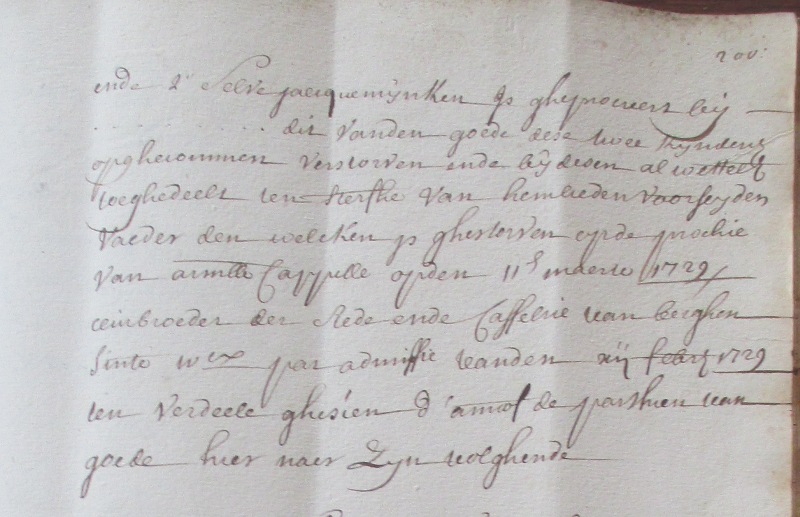 ende d' Selve jacquemijnken js gheprocreert bij
. . . . . . . . . . dit vanden goede dese twee kijnders
opghecommen verstorven ende bij desen al wettelt
toeghedeelt ten sterfhe van hemlieden voorseyden
vaeder den welcken js ghestorven op de prochie
van Cappelle opden 11 maerte 1729
der stede ende Casselrie van berghen
Sinte par admissie vanden xij febry 1729
ten verdeele ghesien d' de parthien van
goede hier naer Zyn volghende